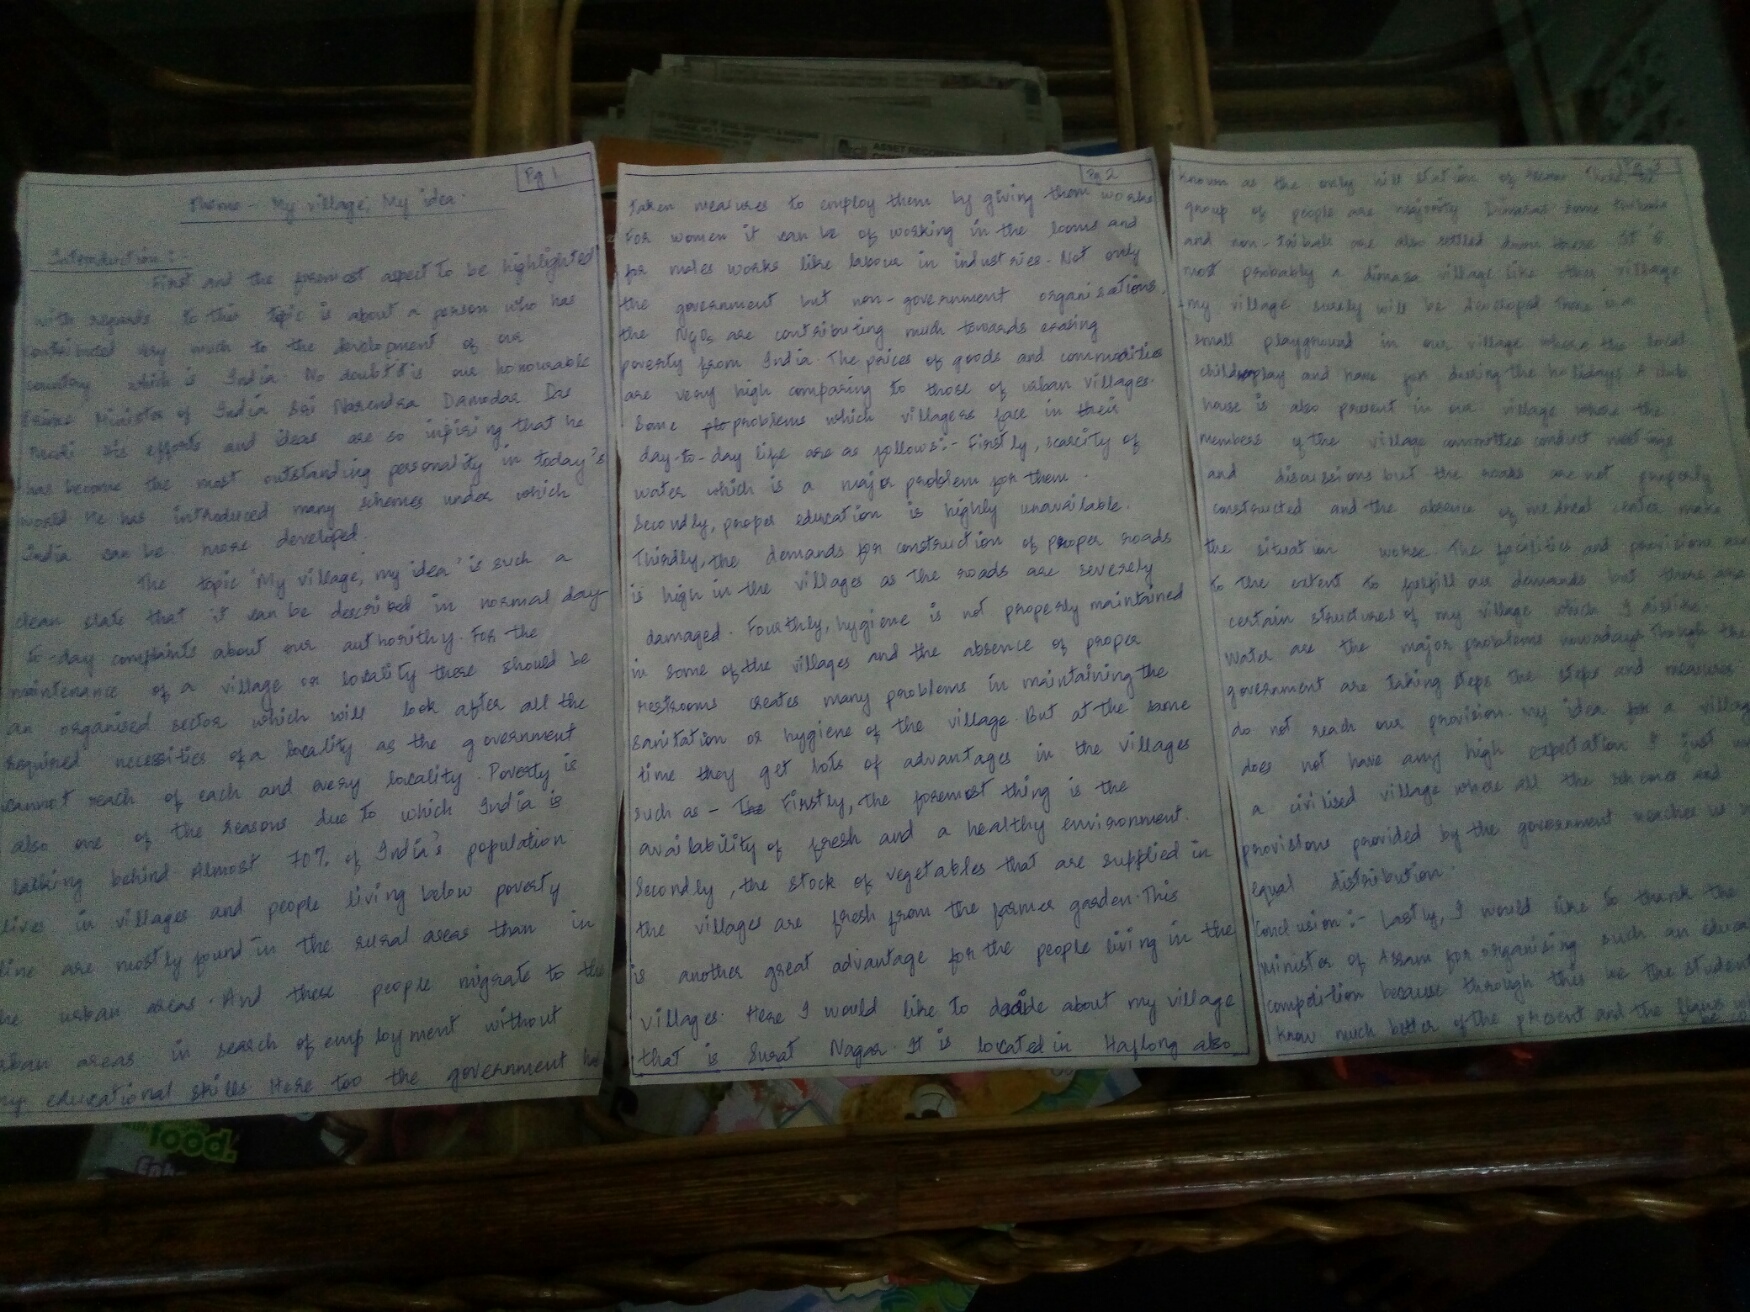 Pg 1
Theme - My village, My idea.
Introduction :-
First and the foremost aspect to be highlighted
with regards to this topic is about a person who has
contributed very much to the development of our
country which is India. No doubt it is our honourable
Prime Minister of India Sri Narendra Damodar Das
Modi His efforts and ideas are so inspiring that he
has become the most outstanding personality in today's
world He has introduced many schemes under which
India can be more developed.
The topic 'My village, my idea' is such a
clean slate that it can be described in normal day-
to-day complaints about our authorithy. For the
maintenance of a village or locality there should be
an organised sector which will look after all the
required necessities of a locality as the government
cannot reach of each and every locality. Poverty is
also one of the reasons due to which India is
lacking behind. Almost 70% of India's population
lives in villages and people living below poverty
line are mostly found in the rural areas than in
the urban areas. And these people migrate to the
urban areas in search of employment without
any educational skills. Here too the government has
Pg 2
taken measures to employ them by giving them works
For women it can be of working in the looms and
for males works like labour in industries. Not only
the government but non-government organisations.
the NGOs are contributing much towards erasing
poverty from India. The prices of goods and commodities
are very high comparing to those of urban villages.
Some problems which villagers face in their
day-to-day life are as follows:- Firstly, scarcity of
water which is a major problem for them.
Secondly, proper education is highly unavailable.
Thirdly, the demands for construction of proper roads
is high in the villages as the roads are severely
damaged. Fourthly, hygiene is not properly maintained
in some of the villages and the absence of proper
restrooms creates many problems in maintaining the
sanitation or hygiene of the village. But at the same
time they get lots of advantages in the villages
such as - Firstly, the foremost thing is the
availability of fresh and a healthy environment.
Secondly, the stock of vegetables that are supplied in
the villages are fresh from the farmer garden. This
is another great advantage for the people living in the
villages. Here I would like to about my village
that is Surat Nagar. It is located in Haflong also
Pg 3
known as the only hill station of Assam There, the
group of people are majority Dimasas some tribals
and non-tribals are also settled down there It is
most probably a dimasa village like other village
my village surely will be developed There is a
small playground in our village where the local
children play and have fun during the holidays. A club
house is also present in our village where the
members of the village committee conduct meetings
and discussions but the roads are not properly
constructed and the absence of medical center make
the situation worse. The facilities and provisions are
to the extent to fulfill our demands but there are
certain structures of my village which I dislike.
Water are the major problems nowadays Though the
government are taking steps the steps and measures
do not reach our provision. My idea for a village
does not have any high expectation I just
a civilised village where all the schemes and
provisions provided by the government reaches us
equal distribution.
Conclusion :- Lastly, I would like to thank the
minister of Assam for organising such an
competition because through this we the student
know much better of the present and the
food.